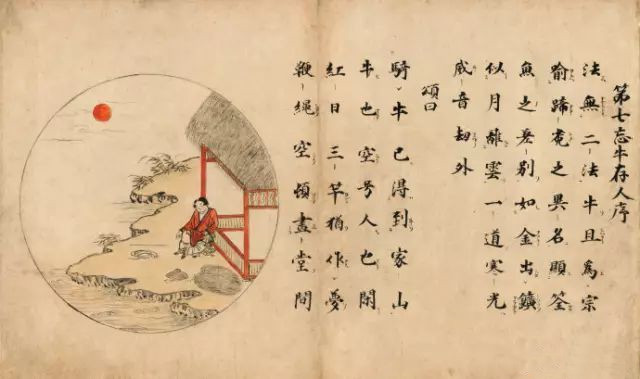 第七忘牛存人序
法無二法牛且爲宗
喻蹄菟之異名顯筌
魚之差別如金出鑛
似月離雲一道寒光
威音劫外
頌曰
騎牛已得到家山
牛也空兮人也閑
紅日三竿猶作夢
鞭繩空頓堂間